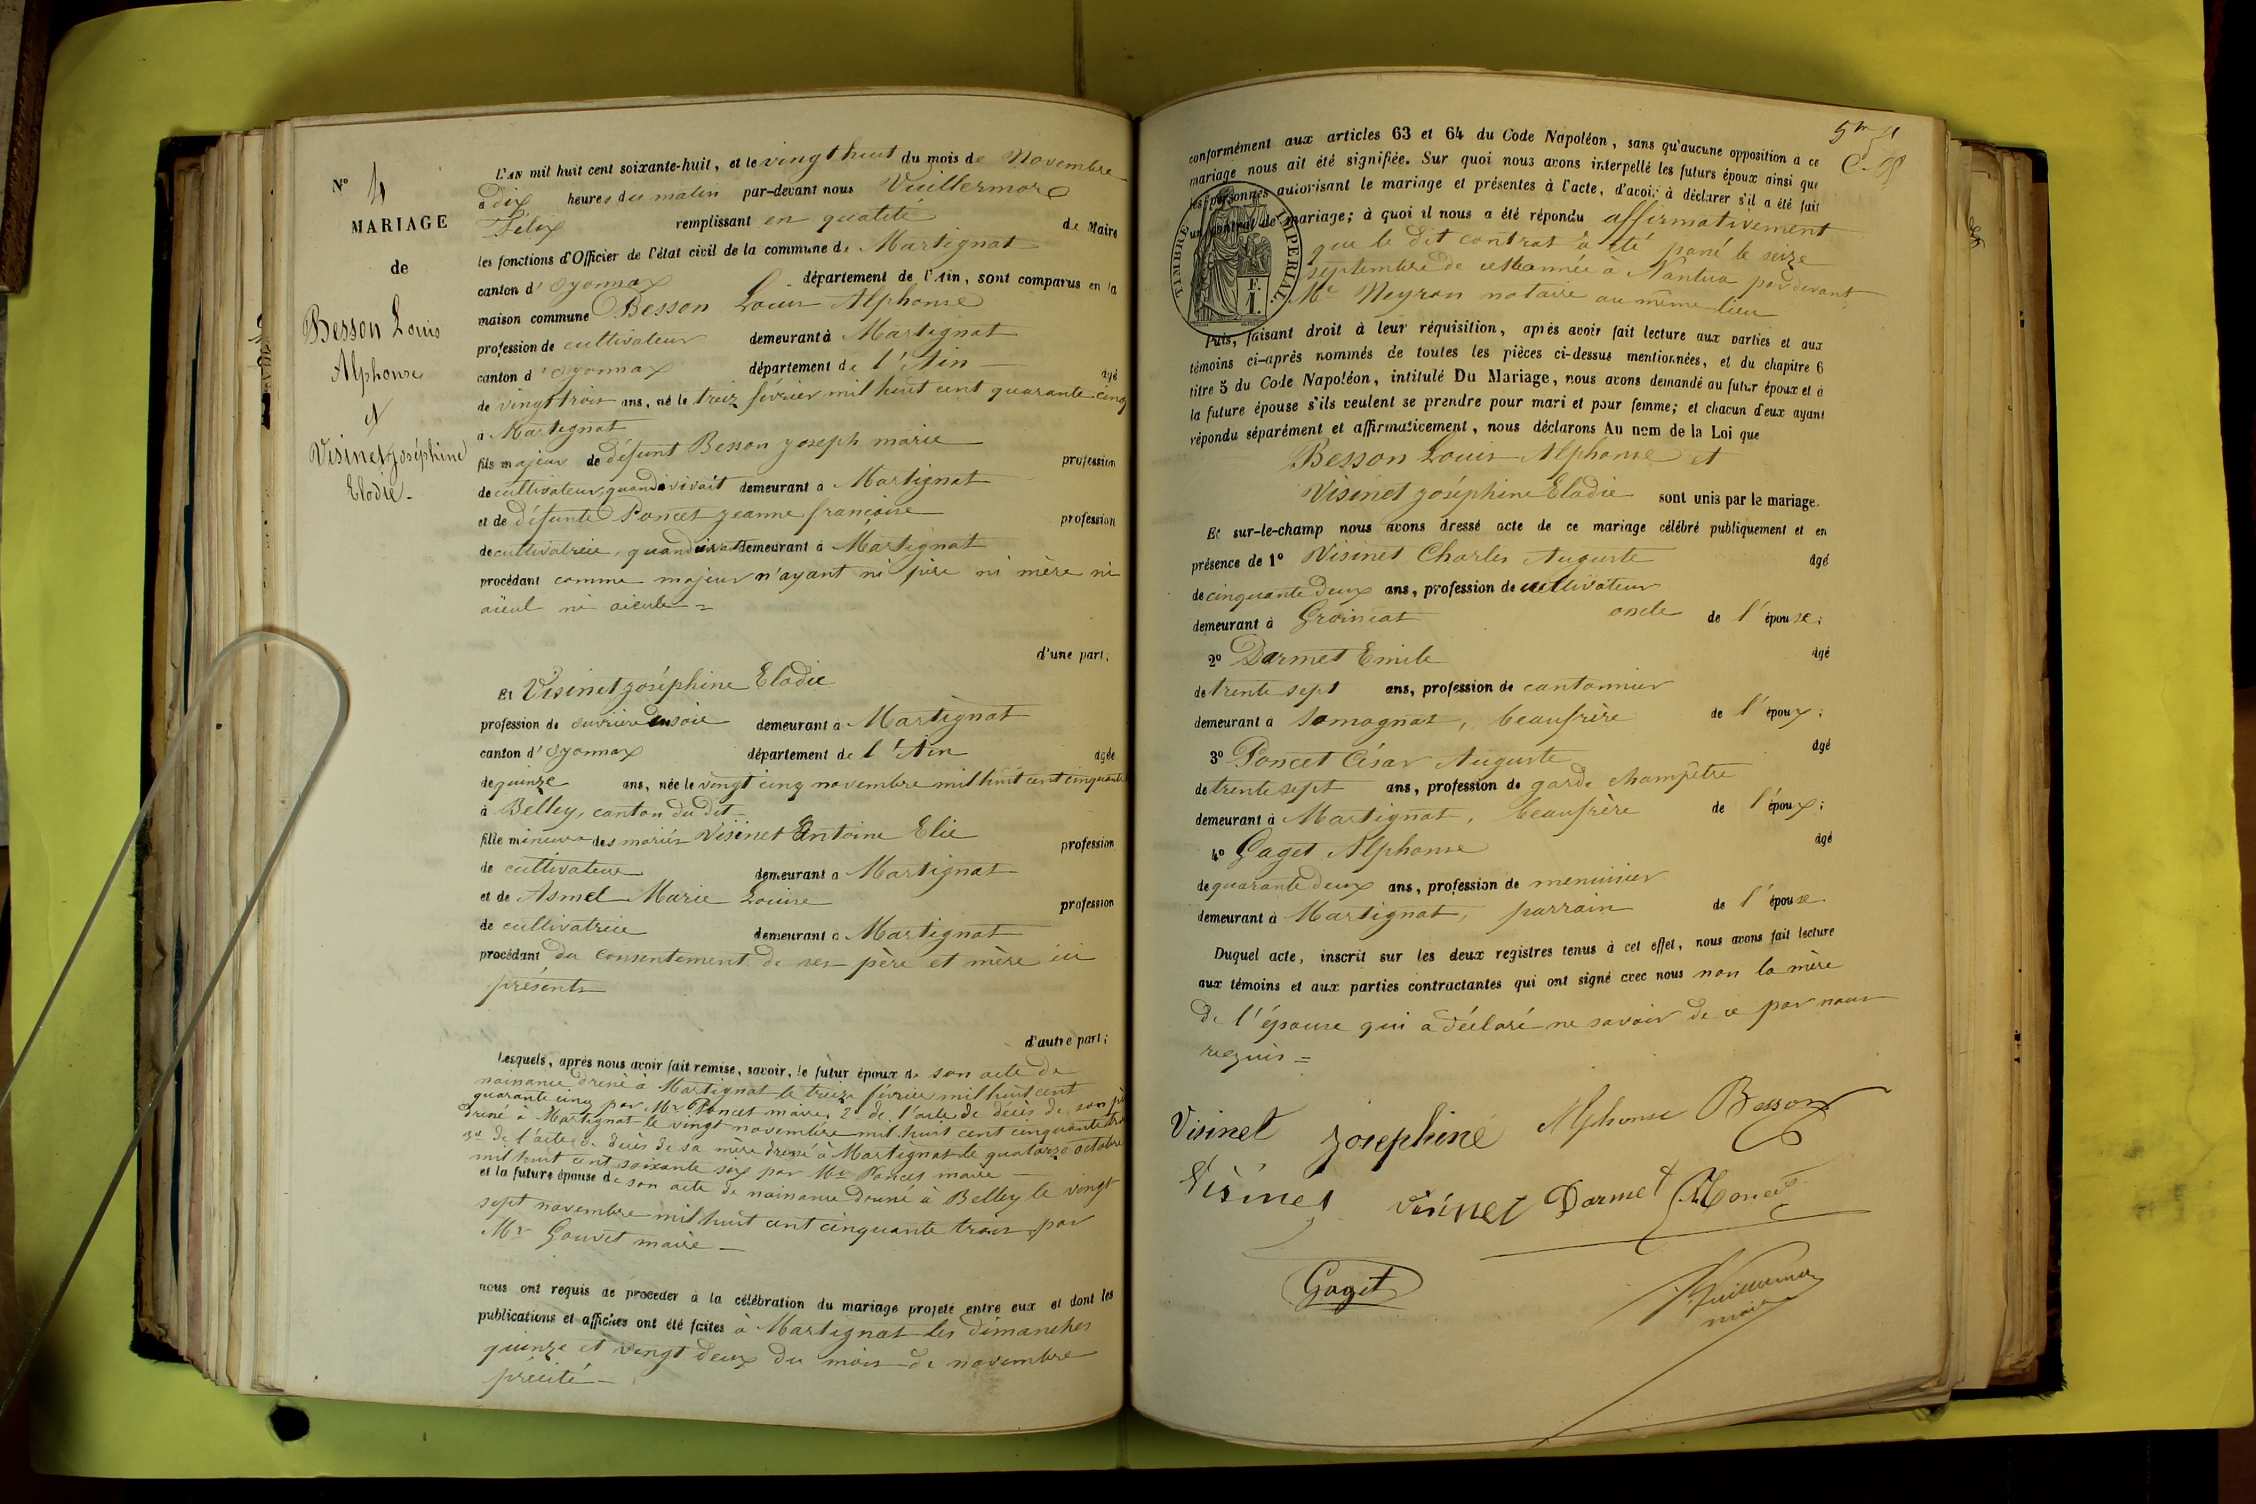 N° 4
MARIAGE
de
Besson Louis
Alphonse
et
Visinet Joséphine
Elodie -
L'AN mil huit cent soixante-huit, et le vingt huit du mois de Novembre
à dix heures du matin par-devant nous Vuillermoz
Félix remplissant en qualité de Maire
les fonctions d'Officier de l'état civil de la commune de Martignat
canton d'Oyonnax département de l'Ain, sont comparus en la
maison commune Besson Louis Alphonse
profession de cultivateur demeurant à Martignat
canton d'Oyonnax département de l'Ain âgé
de vingt trois ans, né le treize février mil huit cent quarante cinq
à Martignat
fils majeur de défunt Besson Joseph marie profession
de cultivateur, quand il vivait demeurant à Martignat
et de défunte Poncet Jeanne françoise profession
de cultivatrice, quand vivait demeurant à Martignat
procédant comme majeur n'ayant ni père ni mère ni
aïeul ni aieule =
d'une part;
Et Visinet Joséphine Elodie
profession de ouvrière en soie demeurant à Martignat
canton d'Oyonnax département de l'Ain âgée
de quinze ans, née le vingt cinq novembre mil huit cent cinquante
à Belley, canton du dit
fille mineure des mariés Visinet Antoine Elie profession
de cultivateur demeurant à Martignat
et de Asmel Marie Louise profession
de cultivatrice demeurant à Martignat
procédant du consentement de ses père et mère ici
présents
d'autre part;
Lesquels, après nous avoir fait remise, savoir, le futur époux de son acte de
naissance dressé à Martignat le treize février mil huit cent
quarante cinq par Mr Poncet maire, 2° de l'acte de décès de son père
dressé à Martignat le vingt novembre mil huit cent cinquante
3° de l'acte de décès de sa mère dressé à Martignat le quatorze octobre
mil huit cent soixante six par Mr Poncet maire
et la future épouse de son acte de naissance dressé à Belley le vingt
sept novembre mil huit cent cinquante trois par
Mr Gouvet maire -
nous ont requis de procéder à la célébration du mariage projeté entre eux et dont les
publications et affiches ont été faites à Martignat les dimanches
quinze et vingt deux du mois de novembre
précité -
conformément aux articles 63 et 64 du Code Napoléon, sans qu'aucune opposition à ce
mariage nous ait été signifiée. Sur quoi nous avons interpellé les futurs époux ainsi que
les personnes autorisant le mariage et présentes à l'acte, d'avoir à déclarer s'il a été fait
un contrat de mariage; à quoi il nous a été répondu affirmativement
que le dit contrat a été passé le seize
septembre de cette année à Nantua par devant
Me Neyron notaire au même lieu
TIMBRE IMPÉRIAL.
F.
1.
Puis, faisant droit à leur réquisition, après avoir fait lecture aux parties et aux
témoins ci-après nommés de toutes les pièces ci-dessus mentionnées, et du chapitre 6
titre 5 du Code Napoléon, intitulé Du Mariage, nous avons demandé au futur époux et à
la future épouse s'ils veulent se prendre pour mari et pour femme; et chacun d'eux ayant
répondu séparément et affirmativement, nous déclarons Au nom de la Loi que
Besson Louis Alphonse et
Visinet Joséphine Elodie sont unis par le mariage.
Et sur-le-champ nous avons dressé acte de ce mariage célébré publiquement et en
présence de 1° Visinet Charles Auguste âgé
de cinquante deux ans, profession de cultivateur
demeurant à Groissiat oncle de l'épouse;
2° Darmet Emile âgé
de trente sept ans, profession de cantonnier
demeurant à Samognat, beaufrère de l'époux;
3° Poncet César Auguste âgé
de trente sept ans, profession de garde champêtre
demeurant à Martignat, beaufrère de l'époux;
4° Gaget Alphonse âgé
de quarante deux ans, profession de menuisier
demeurant à Martignat, parrain de l'épouse
Duquel acte, inscrit sur les deux registres tenus à cet effet, nous avons fait lecture
aux témoins et aux parties contractantes qui ont signé avec nous non la mère
de l'épouse qui a déclaré ne savoir de ce par nous
requis =
Visinet Josephine Alphonse Besson
Visinet visinet Darmet
Gaget Vuillermoz
maire